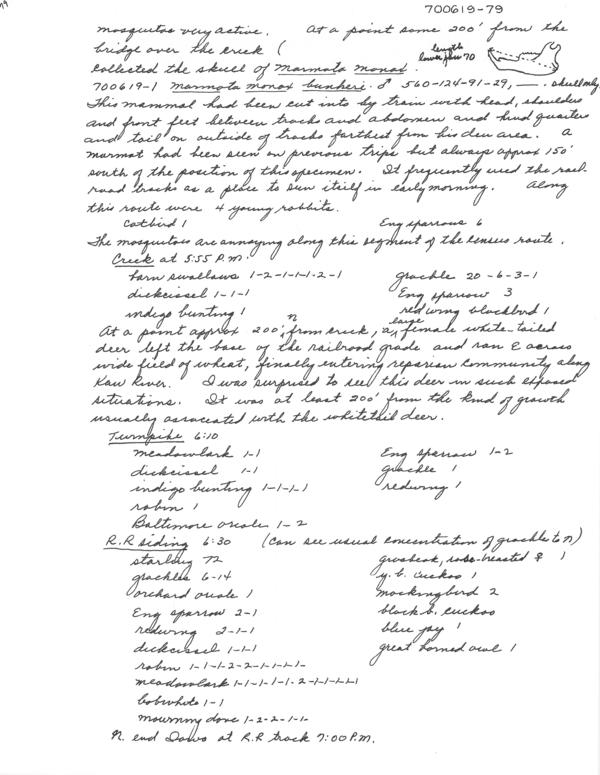 700619-79
mosquitos very active. At a point some 200' from the
bridge over the creek (
length
lower jaw 70
Collected the skull of Marmota monax.
700619-1 Marmota monax bunkeri ♂ 560-124-91-29, —. skull only
This mammal had been cut into by train with head, shoulders
and front feet between tracks and abdomen and hind quarters
and tail on outside of tracks farthest from his den area. A
marmot had been seen on previous trips but always approx 150'
south of the position of this specimen. It frequently used the rail-
road tracks as a place to sun itself in early morning. Along
this route were 4 young rabbits.
Catbird 1 Eng sparrows 6
The mosquitoes are annoying along this segment of the census route.
Creek at 5:55 P.M.
barn swallows 1-2-1-1-1-2-1 grackle 20-6-3-1
dickcissel 1-1-1 Eng sparrow 3
indigo bunting 1 redwing blackbird 1
At a point approx 200' n from creek, a large female white-tailed
deer left the base of the railroad grade and ran E across
wide field of wheat, finally entering reparian community along
Kaw River. I was surprised to see this deer in such exposed
situations. It was at least 200' from the kind of growth
usually associated with the whitetail deer.
Turnpike 6:10
meadowlark 1-1 Eng sparrow 1-2
dickcissel 1-1 grackle 1
indigo bunting 1-1-1-1 redwing 1
robin 1
Baltimore oriole 1-2
R.R siding 6:30 (can see usual concentration of grackles to n)
starling 72 grosbeak, rose-breasted ♀ 1
grackles 6-14 y. b. cuckoo 1
orchard oriole 1 mockingbird 2
Eng sparrow 2-1 black b. cuckoo
redwing 2-1-1 blue jay 1
dickcissel 1-1-1 great horned owl 1
robin 1-1-1-2-2-1-1-1-1-
meadowlark 1-1-1-1-1-2-1-1-1-1
bobwhite 1-1
mourning dove 1-2-2-1-1-
N. end Laws at R.R track 7:00 P.M.